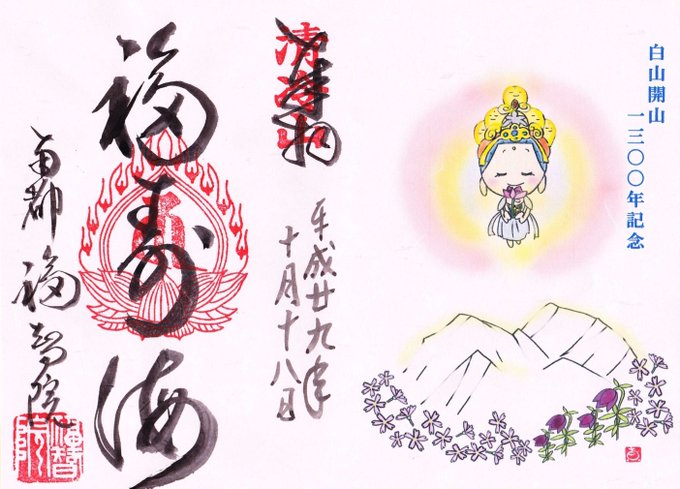 白山開山
一三〇〇年記念
奉拝
平成廿九年
十月十八日
福寿海
南都 福智院